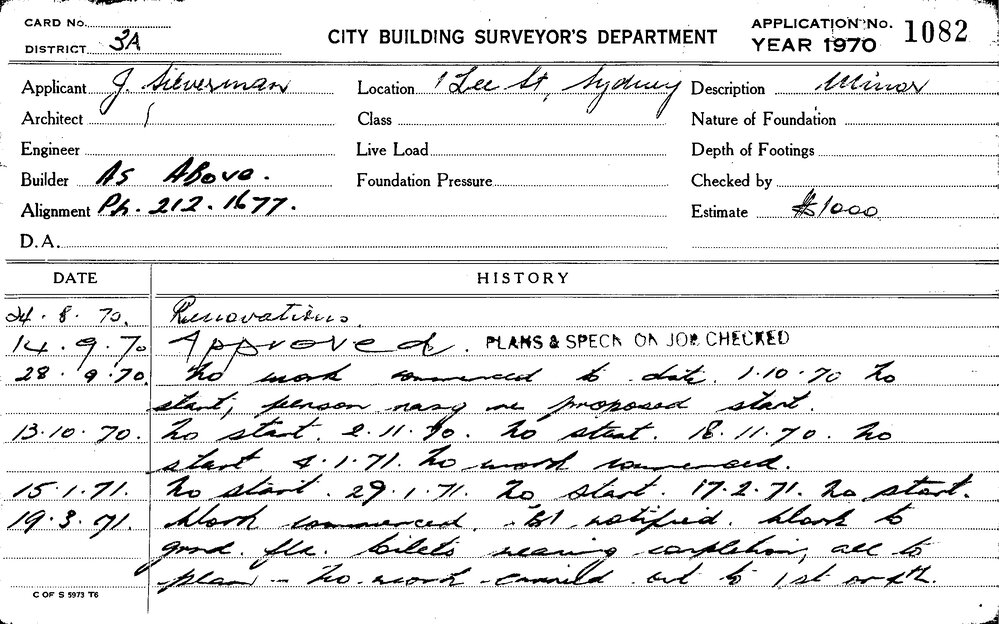 CARD No.
DISTRICT 3A
CITY BUILDING SURVEYOR'S DEPARTMENT
APPLICATION No. 1082
YEAR 1970
Applicant J. Silverman Location 1 Lee St, Sydney Description Minor
Architect Class Nature of Foundation
Engineer Live Load Depth of Footings
Builder As Above. Foundation Pressure Checked by
Alignment Ph. 212.1677. Estimate $1000
D.A.
DATE HISTORY
24.8.70. Renovations.
14.9.70 Approved. PLANS & SPECN ON JOB CHECKED
28.9.70. No work commenced to date. 1.10.70 No
start, person re proposed start.
13.10.70. No start. 2.11.70. No start. 18.11.70. No
start. 4.1.71. No work commenced.
15.1.71. No start. 29.1.71. No start. 17.2.71. No start.
19.3.71. Work commenced. notified. Work to
grnd. flr. toilets nearing completion, all to
plan - No work carried out to 1st or 4th.
C OF S 5973 T6